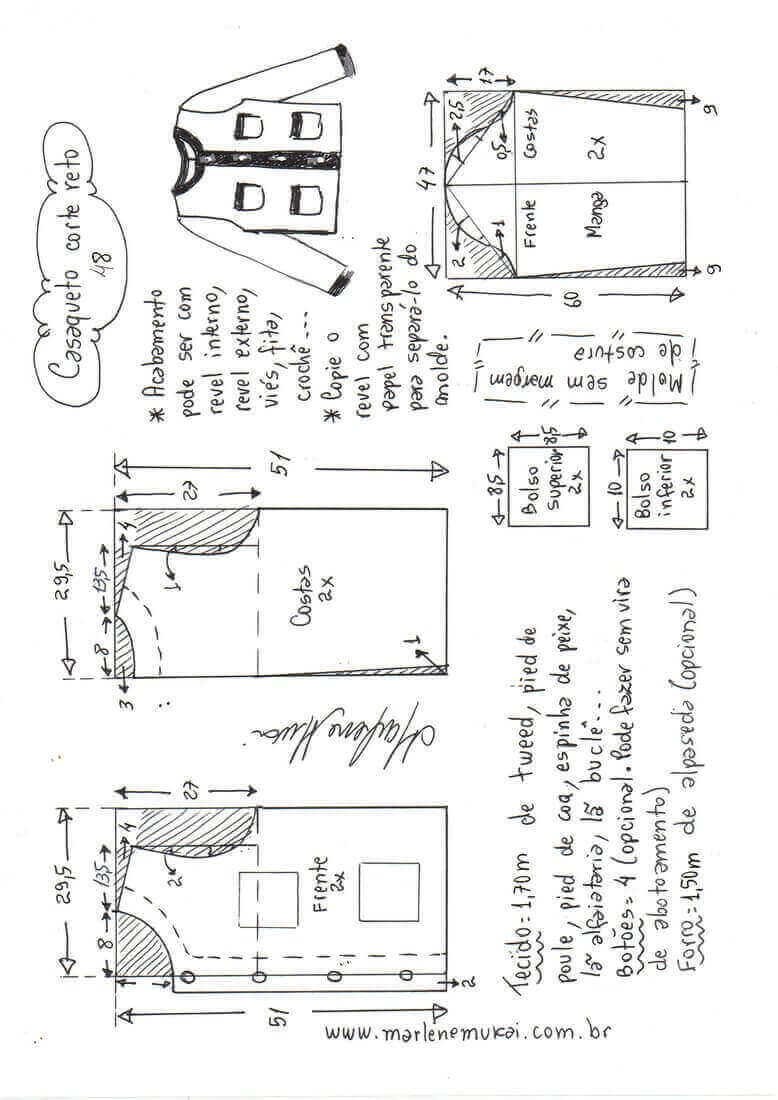 Casaqueto corte reto
48
* Acabamento
pode ser com
revel interno,
revel externo,
viés, fita,
crochê...
* Copie o
revel com
papel transparente
para separá-lo do
molde.
47
17
2,5
0,5
Costas
2x
2
1
Frente
Manga
60
6
6
Molde sem margem
de costura
29,5
8
13,5
4
3
27
51
1
Costas
2x
1
8,5
8,5
Bolso
superior
2x
10
10
Bolso
inferior
2x
29,5
8
13,5
4
27
2
Frente
2x
51
2
Tecido = 1,70m de tweed, pied de
poule, pied de coq, espinha de peixe,
lã alfaiataria, lã buclê...
Botões = 4 (opcional. Pode fazer sem vira
de abotoamento)
Forro = 1,50m de alpaseda (opcional)
www.marlenemukai.com.br